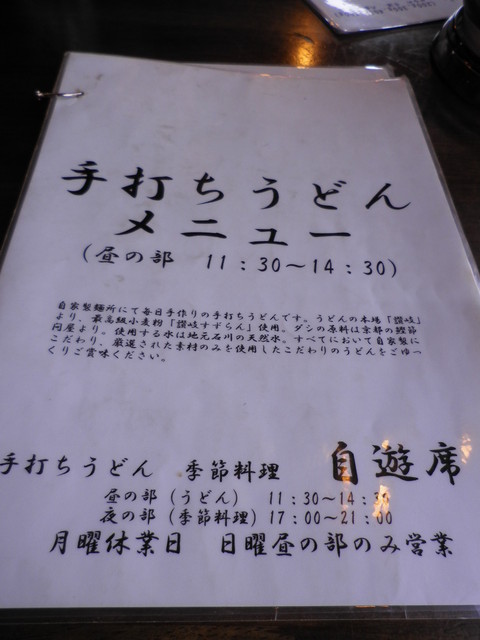 手打ちうどん
メニュー
(昼の部 11:30～14:30)
自家製麺所にて毎日手作りの手打ちうどんです。うどんの本場「讃岐」
より、最高級小麦粉「讃岐すずらん」使用。ダシの原料は京都の鰹節
問屋より。使用する水は地元石川の天然水。すべてにおいて自家製に
こだわり、厳選された素材のみを使用したこだわりのうどんをごゆっ
くりご賞味ください。
手打ちうどん 季節料理 自遊席
昼の部(うどん) 11:30～14:30
夜の部(季節料理)17:00～21:00
月曜休業日 日曜昼の部のみ営業